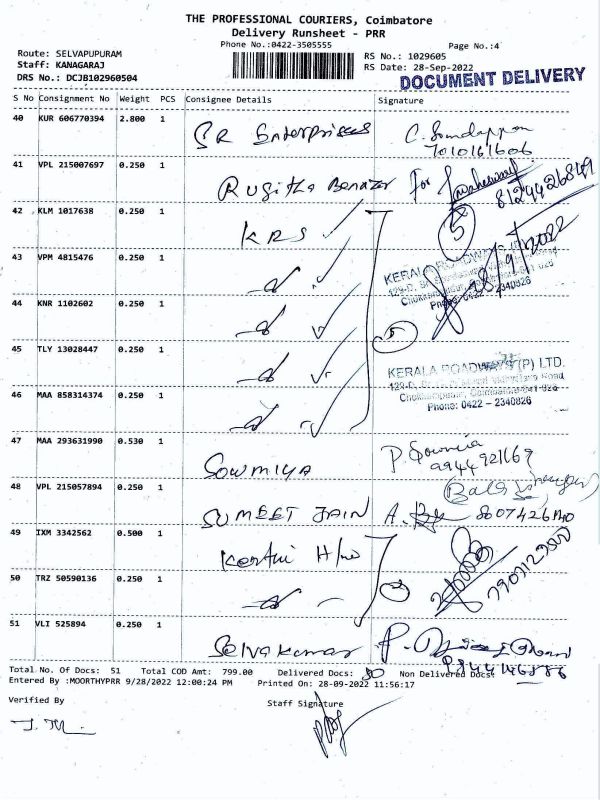 THE PROFESSIONAL COURIERS, Coimbatore
Delivery Runsheet - PRR
Phone No.:0422-3505555
Page No.:4
Route: SELVAPUPURAM
Staff: KANAGARAJ
DRS No.: DCJB102960504
RS No.: 1029605
RS Date: 28-Sep-2022
DOCUMENT DELIVERY
S No Consignment No Weight PCS Consignee Details Signature
40 KUR 606770394 2.800 1 SR Enterprises
7010161606
41 VPL 215007697 0.250 1 for 8124426849
42 KLM 1017638 0.250 1 KRS ✓ 5
28/9/2022
43 VPM 4815476 0.250 1 ✓
KERALA ROADWAYS
Phone: 0422 - 2340826
44 KNR 1102602 0.250 1 ✓
5
45 TLY 13028447 0.250 1 ✓
KERALA ROADWAYS (P) LTD.
46 MAA 858314374 0.250 1 ✓
Phone: 0422 – 2340826
47 MAA 293631990 0.530 1 SOWMIYA P. Sowmia
9944921169
48 VPL 215057894 0.250 1 SUMEET JAIN
49 IXM 3342562 0.500 1
50 TRZ 50590136 0.250 1
51 VLI 525894 0.250 1 Selvakumar
Total No. Of Docs: 51 Total COD Amt: 799.00 Delivered Docs: 50 Non Delivered Docs:
Entered By :MOORTHYPRR 9/28/2022 12:00:24 PM Printed On: 28-09-2022 11:56:17
Verified By Staff Signature